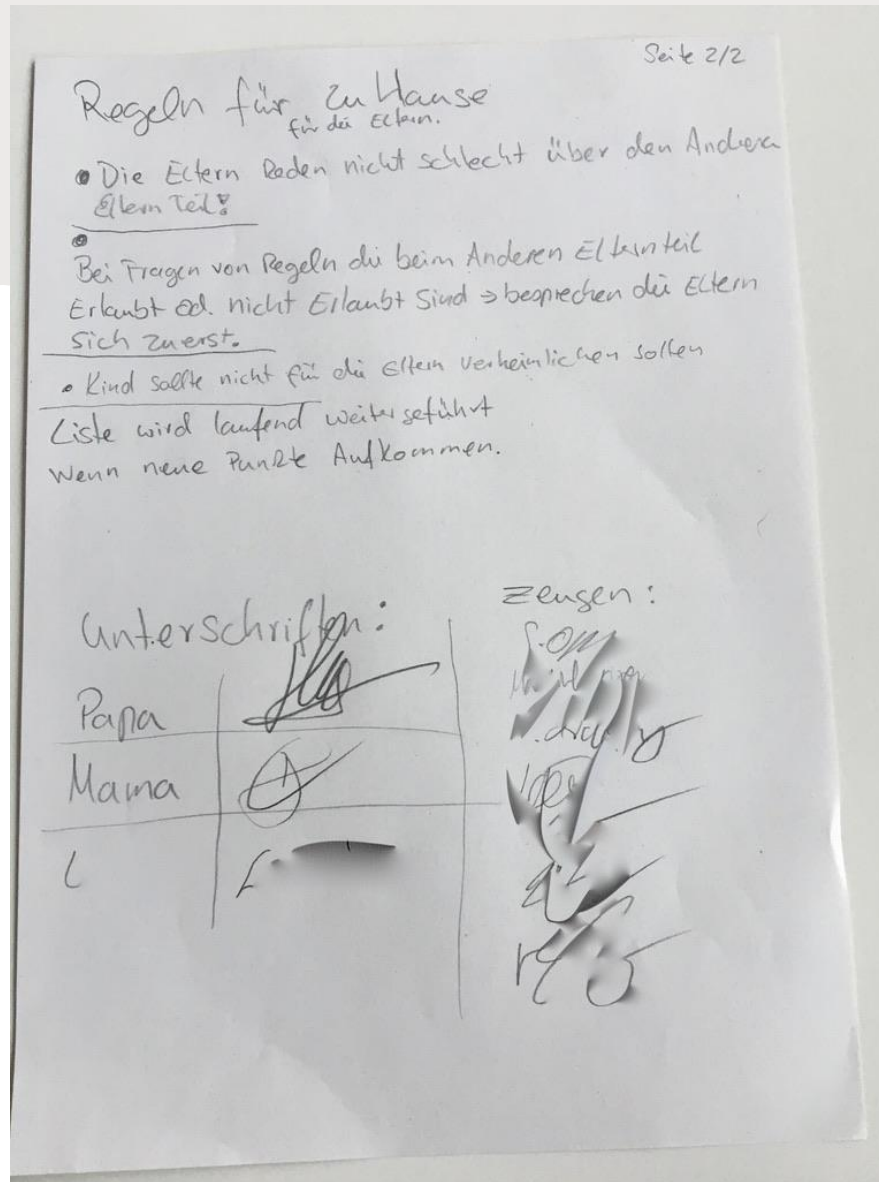 Seite 2/2
Regeln für zu Hause
für die Eltern.
• Die Eltern Reden nicht schlecht über den Anderen
Eltern Teil!
•
Bei Fragen von Regeln die beim Anderen Elternteil
Erlaubt od. nicht Erlaubt Sind → besprechen die Eltern
Sich zuerst.
• Kind sollte nicht für die Eltern verheimlichen sollen
Liste wird laufend weitergeführt
Wenn neue Punkte Aufkommen.
Unterschriften:
Zeugen:
Papa
Mama
L